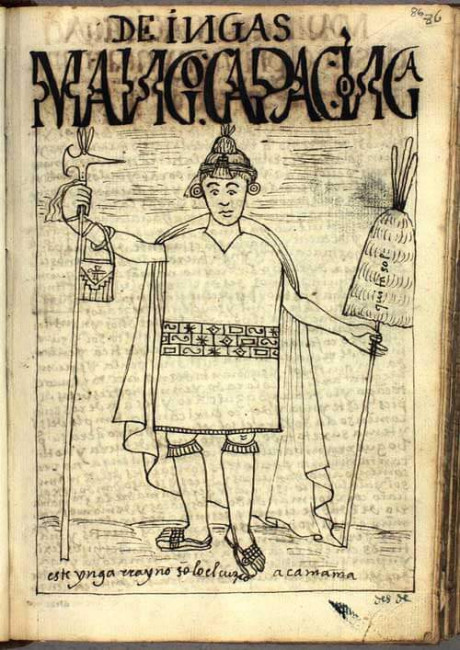 86 86
DE INGAS
MANGOCAPACINGA
quitasol
este ynga rrayno solo el cuzco acamama
des de